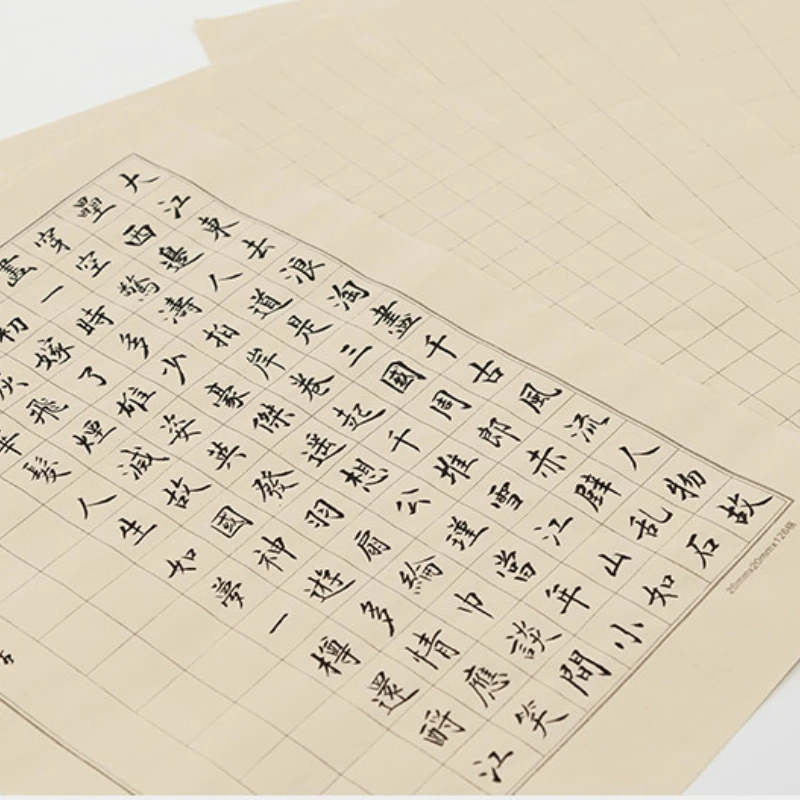 大江東去浪淘盡千古風流人物故
壘西邊人道是三國周郎赤壁乱石
穿空驚濤拍岸卷起千堆雪江山如
畫一時多少豪傑遥想公瑾當年小
初嫁了雄姿英發羽扇綸巾談間
灰飛煙滅故國神遊多情應笑
華髮人生如夢一樽還酹江
20mmx20mmx126格